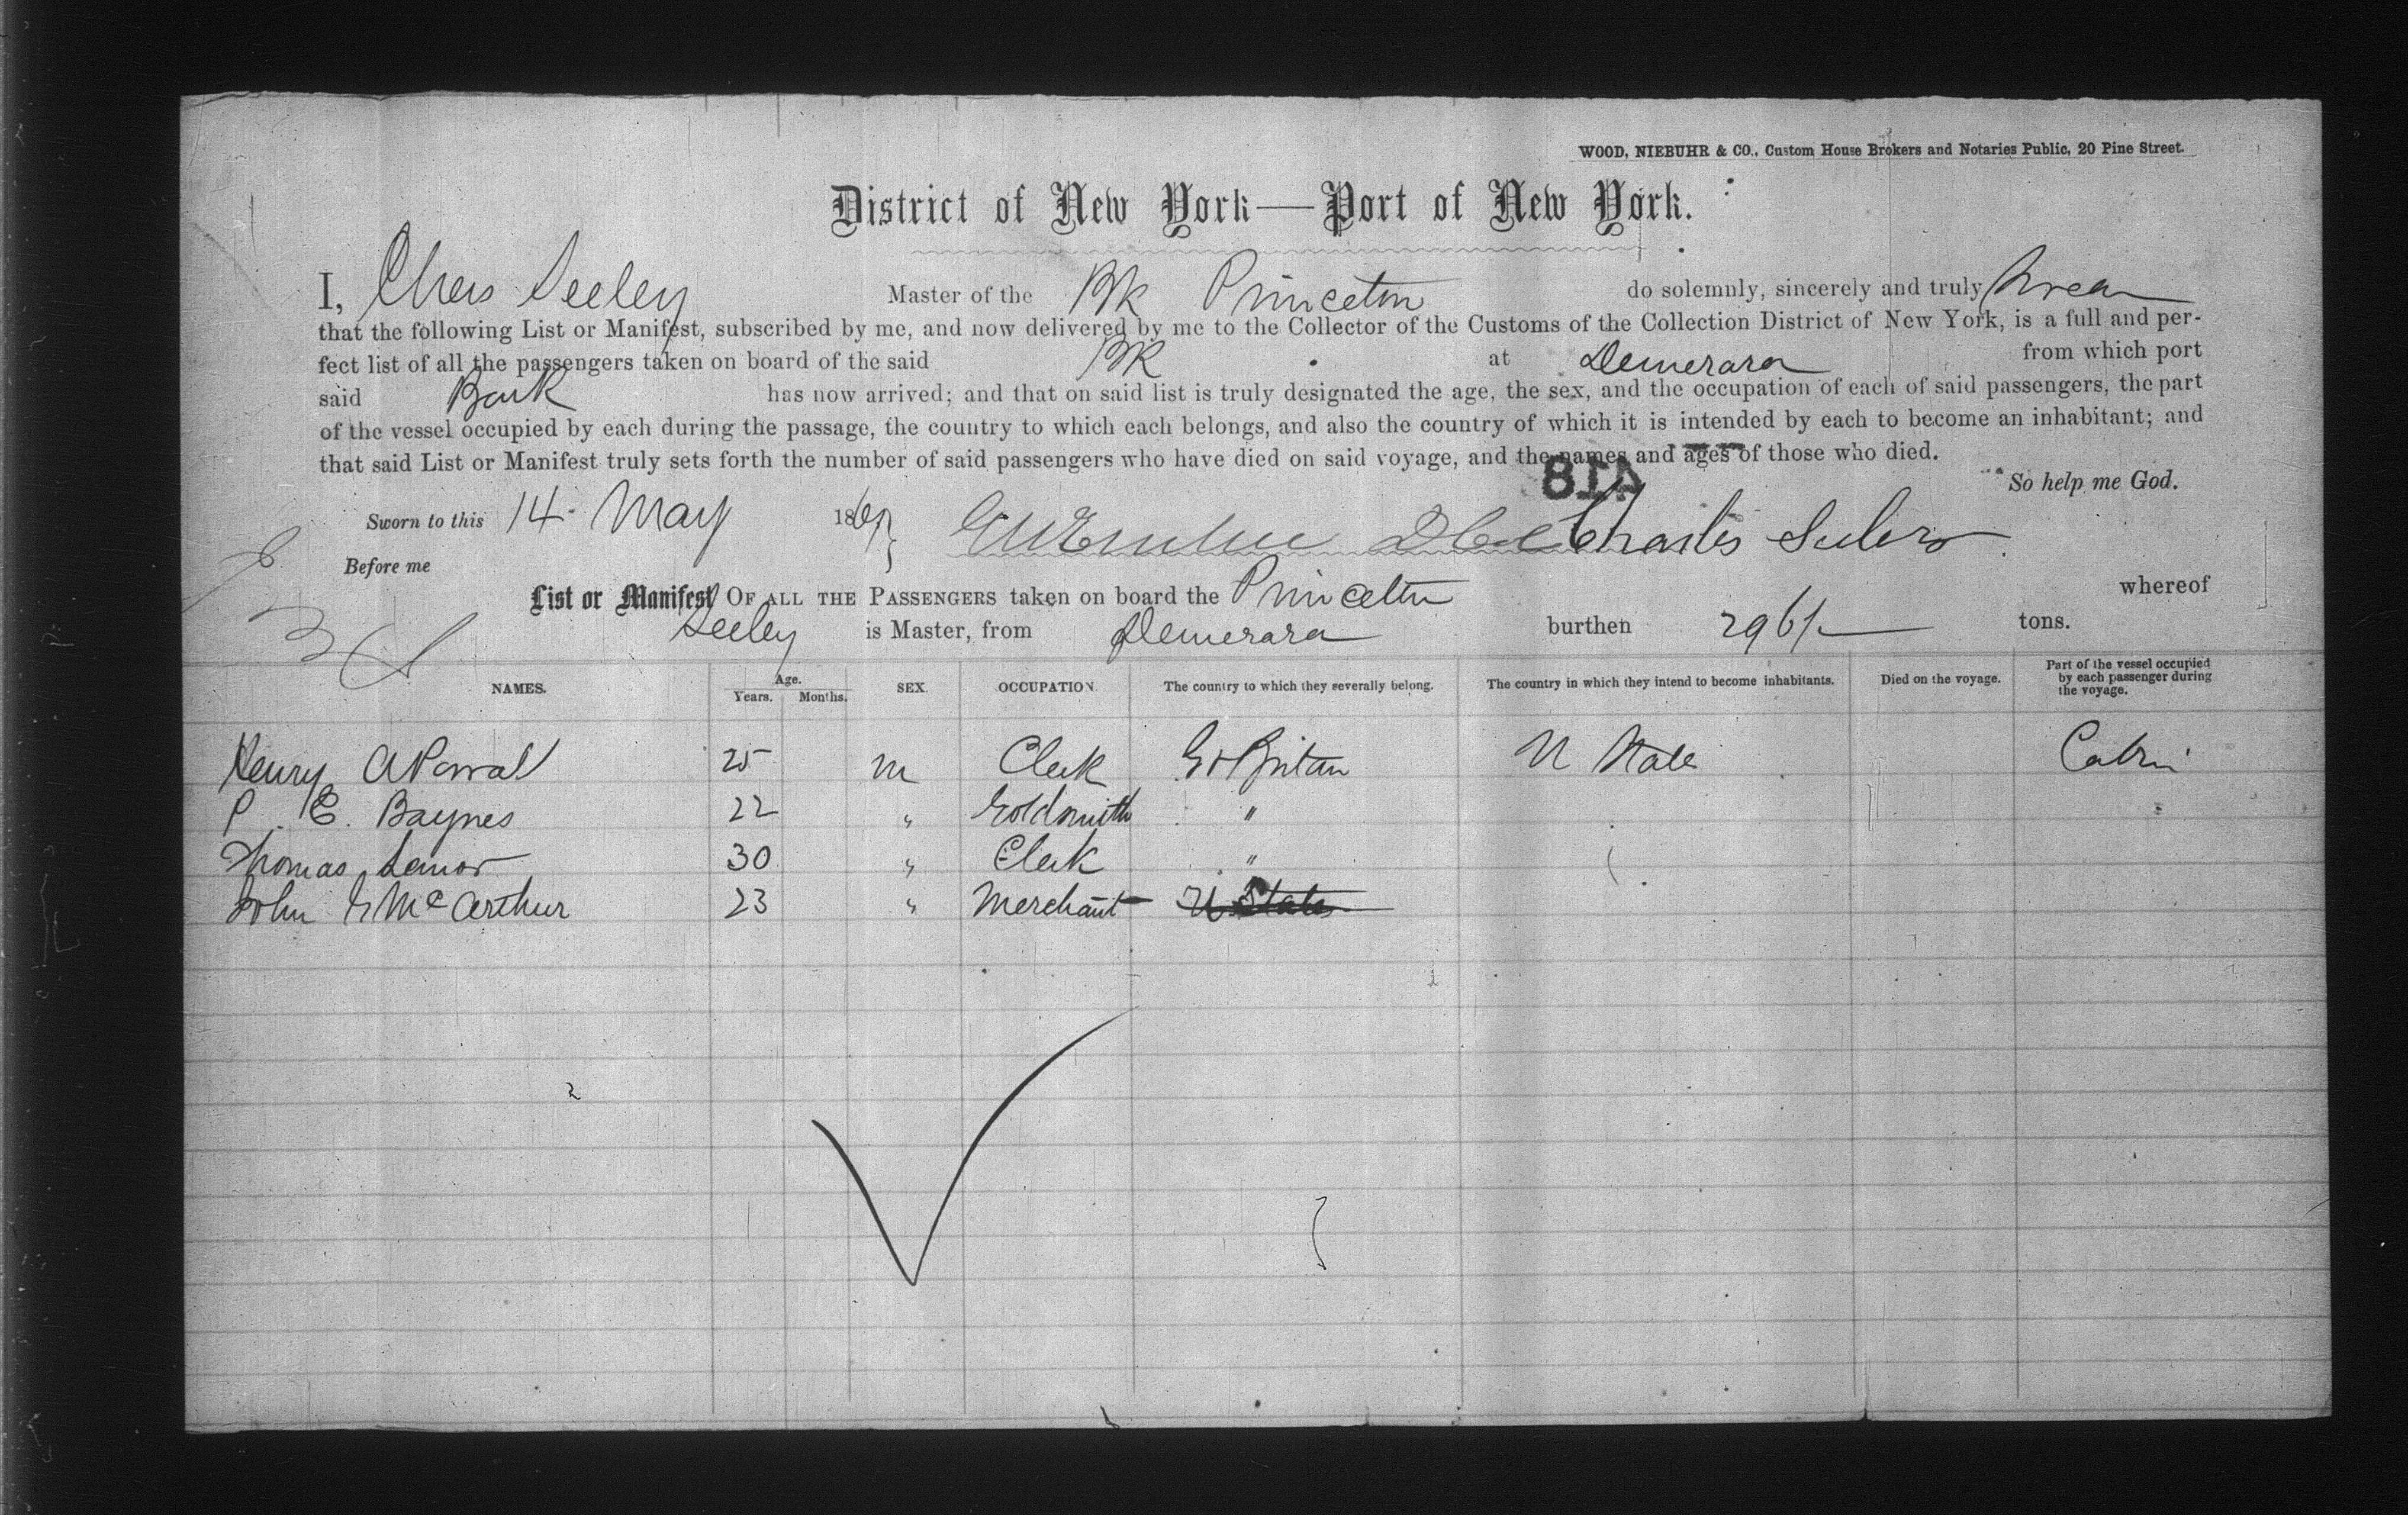 WOOD, NIEBUHR & CO., Custom House Brokers and Notaries Public, 20 Pine Street.
District of New York—Port of New York.
I, Chas Seeley Master of the Bk Princeton do solemnly, sincerely and truly swear
that the following List or Manifest, subscribed by me, and now delivered by me to the Collector of the Customs of the Collection District of New York, is a full and per-
fect list of all the passengers taken on board of the said Bk at Demerara from which port
said Bark has now arrived; and that on said list is truly designated the age, the sex, and the occupation of each of said passengers, the part
of the vessel occupied by each during the passage, the country to which each belongs, and also the country of which it is intended by each to become an inhabitant; and
that said List or Manifest truly sets forth the number of said passengers who have died on said voyage, and the names and ages of those who died.
418
So help me God.
Sworn to this 14 May 1869 Charles Seeley
Before me
List or Manifest OF ALL THE PASSENGERS taken on board the Princeton whereof
Seeley is Master, from Demerara burthen 296/ tons.
NAMES. Age. Years. Months. SEX. OCCUPATION. The country to which they severally belong. The country in which they intend to become inhabitants. Died on the voyage. Part of the vessel occupied by each passenger during the voyage.
Henry 25 m Clerk Gt Britan U State Cabin
P. E. Baynes 22 " Goldsmith "
Thomas 30 " Clerk "
John McArthur 23 " Merchant U States